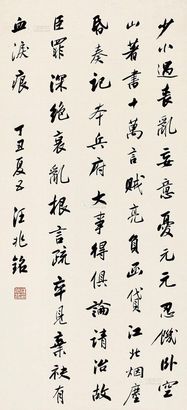 少小遇喪亂妄意憂元元忍饑卧空
山著書十萬言賊亮負函貸江北烟塵
昏奏記本兵府大事得俱論請治故
臣罪深絕衰亂根言疏卒見棄袂有
血淚痕
丁丑夏五 汪兆銘